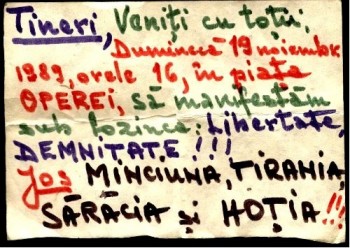 Tineri, Veniți cu toții,
Duminică 19 noiembr.
1989, orele 16, în piața
OPEREI, să manifestăm
sub lozinca: Libertate,
DEMNITATE!!!
Jos MINCIUNA, TIRANIA,
SĂRĂCIA și HOȚIA!!!